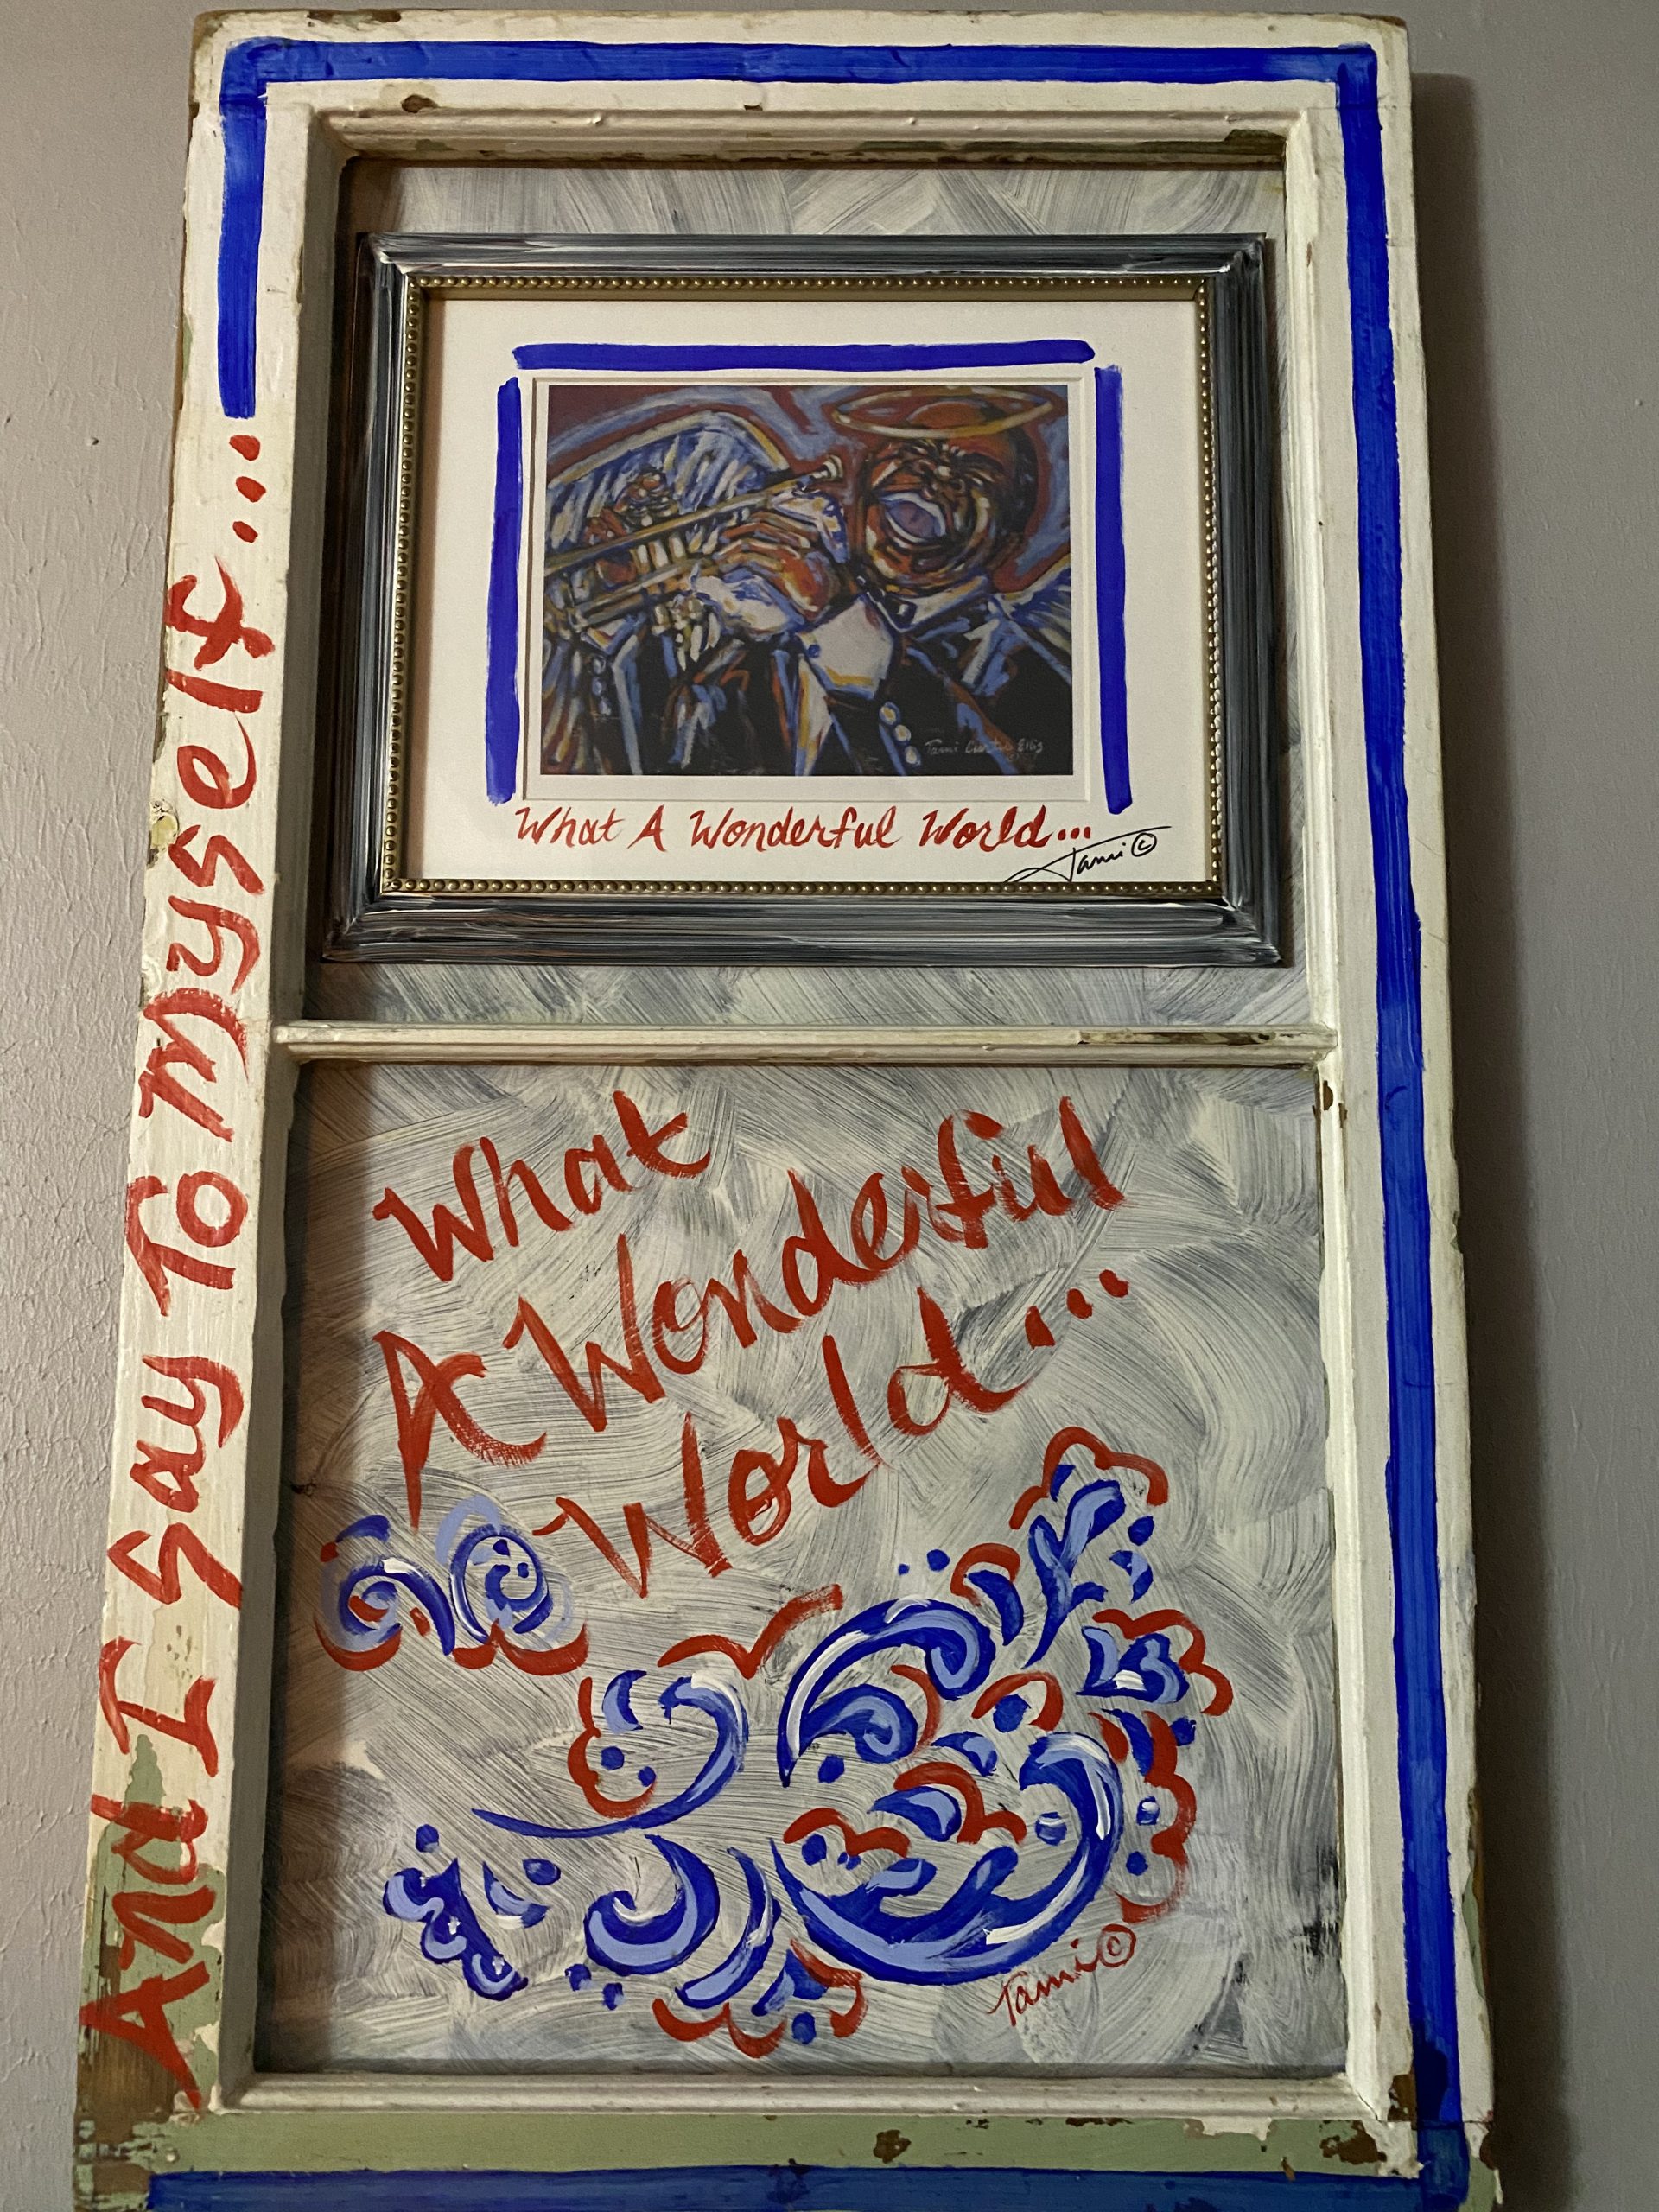 And I Say To Myself...
Tami Curtis Ellis
What A Wonderful World...
Tami ©
What
A Wonderful
World...
Tami ©